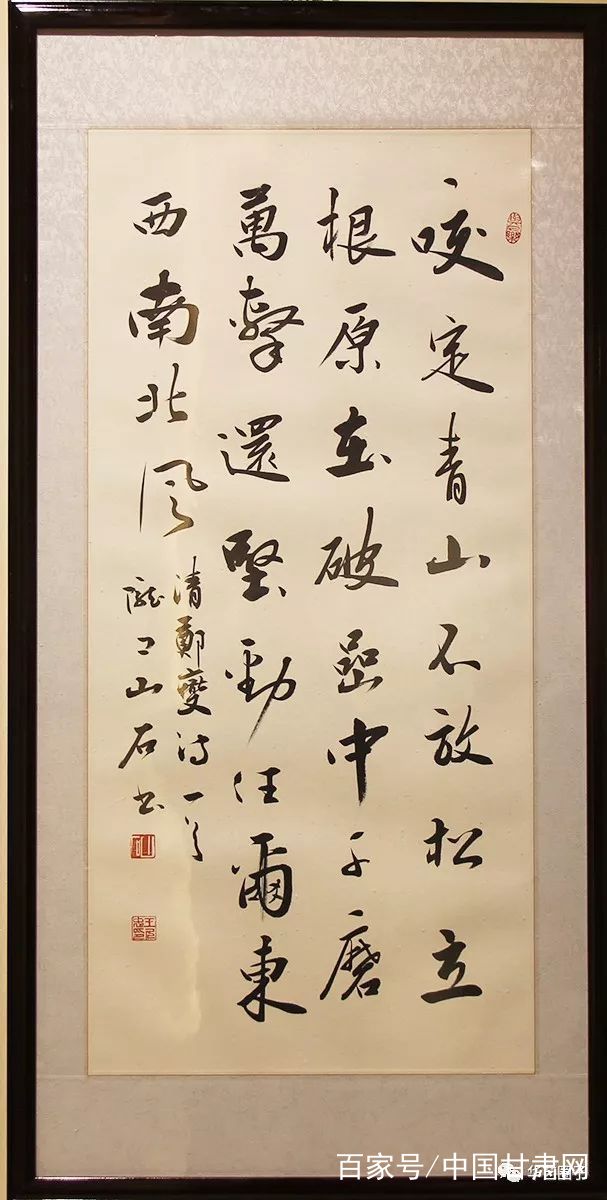 咬定青山不放松立
根原在破嵒中千磨
萬擊還堅勁任爾東
西南北風
清鄭燮詩一首
隴上山石書
山石
百家号/中国甘肃网